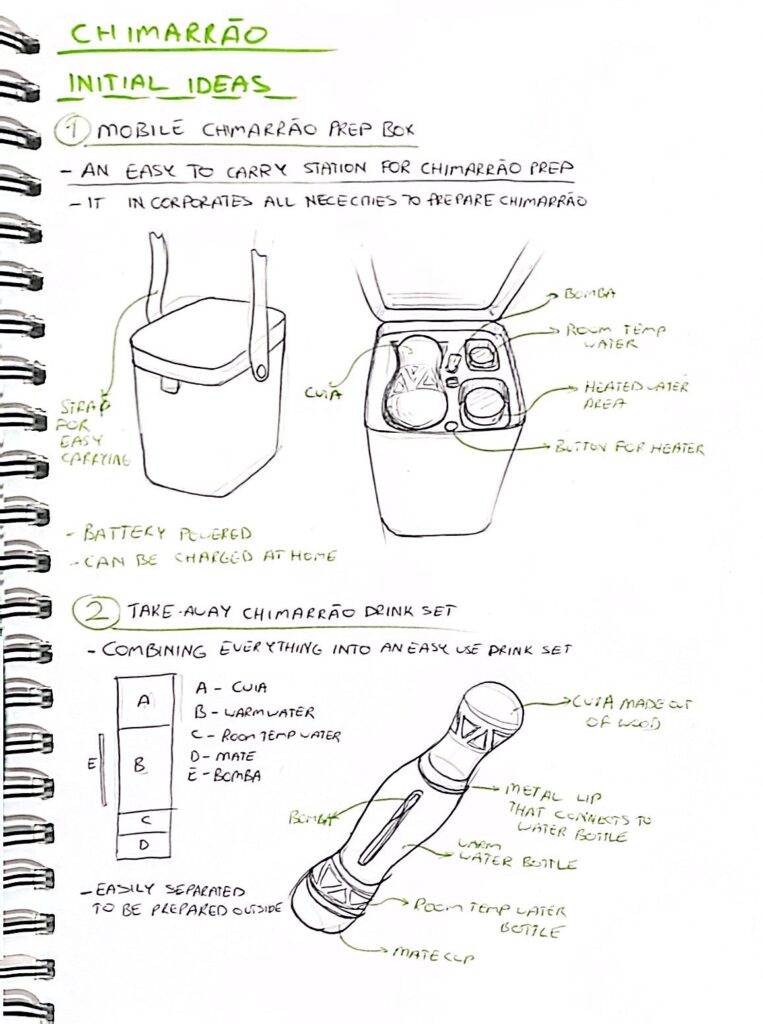 CHIMARRÃO
INITIAL IDEAS
1 MOBILE CHIMARRÃO PREP BOX
- AN EASY TO CARRY STATION FOR CHIMARRÃO PREP
- IT INCORPORATES ALL NECECITIES TO PREPARE CHIMARRÃO
BOMBA
ROOM TEMP
WATER
CUIA
HEATED WATER
AREA
STRAP
FOR
EASY
CARRYING
BUTTON FOR HEATER
- BATTERY POWERED
- CAN BE CHARGED AT HOME
2 TAKE-AWAY CHIMARRÃO DRINK SET
- COMBINING EVERYTHING INTO AN EASY USE DRINK SET
A
B
C
D
E
A - CUIA
B - WARM WATER
C - ROOM TEMP WATER
D - MATE
E - BOMBA
CUIA MADE OUT
OF WOOD
METAL LIP
THAT CONNECTS TO
WATER BOTTLE
BOMBA
WARM
WATER BOTTLE
- EASILY SEPARATED
TO BE PREPARED OUTSIDE
ROOM TEMP WATER
BOTTLE
MATE CUP